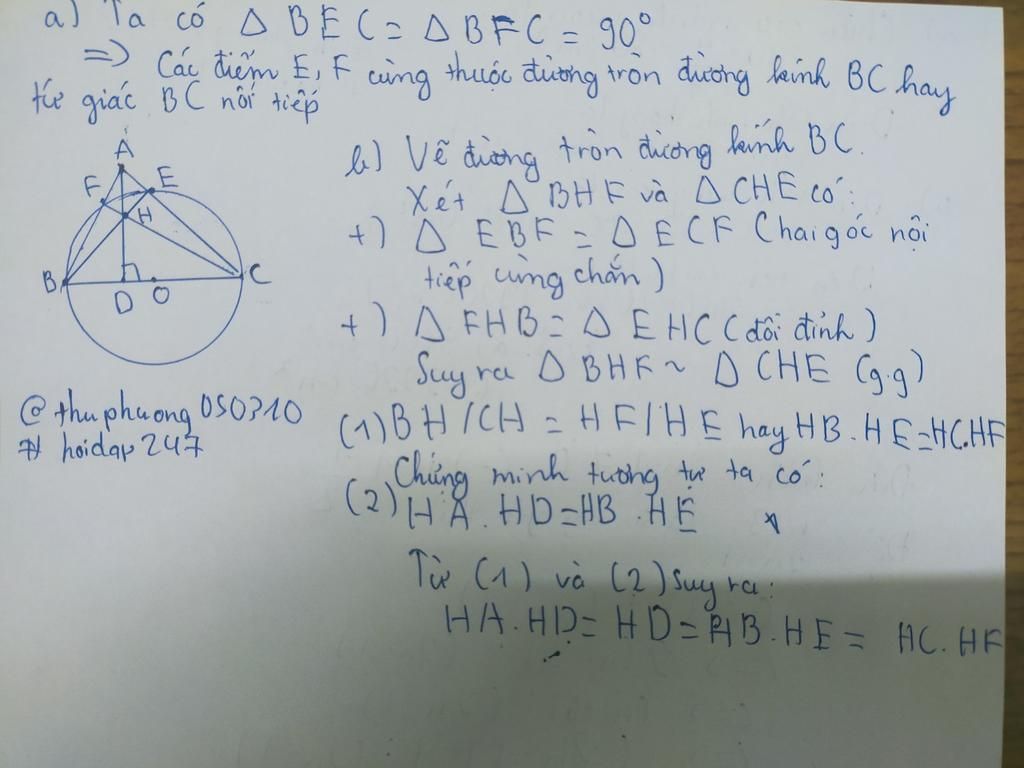 a) Ta có Δ BEC = Δ BFC = 90°
=> Các điểm E, F cùng thuộc đường tròn đường kính BC hay
tứ giác BC nối tiếp
A
F
E
H
B
C
D
O
b) Vẽ đường tròn đường kính BC.
Xét Δ BHF và Δ CHE có:
+) Δ EBF = Δ ECF (hai góc nội
tiếp cùng chắn)
+) Δ FHB = Δ EHC (đối đỉnh)
Suy ra Δ BHF ~ Δ CHE (g.g)
(1) BH/CH = HF/HE hay HB.HE=HC.HF
Chứng minh tương tự ta có:
(2) HA.HD=HB.HE
Từ (1) và (2) suy ra:
HA.HD= HD= HB.HE = HC.HF
@thuphuong050310
# hoidap247